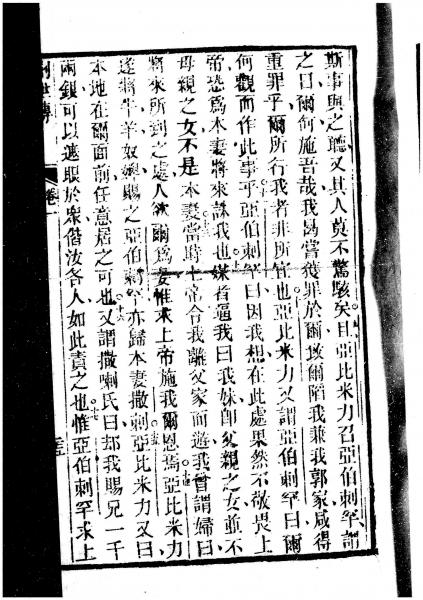 斯事與之聽又其人莫不驚駭矣且亞比米力召亞伯剌罕謂
之曰爾何施吾哉我曷嘗獲罪於爾致爾陷我兼我郭家咸得
重罪乎爾所行我者非所宜也亞比米力又謂亞伯剌罕曰爾
何觀而作此事乎亞伯剌罕曰因我想在此處果然不敬畏上
帝恐為本妻將來誅我也媒者逼我曰我妹卽父親之女並不
母親之女不是本妻當時上帝令我離父家而遊我嘗謂婦曰
將來所到之處人欲爾為妻惟求上帝施我爾恩焉亞比米力
遂將牛羊奴婢賜之亞伯剌罕亦歸本妻撒剌亞比米力又曰
本地在爾面前任意居之可也又謂撒喇氏曰却我賜兄一千
兩銀可以遮眼於衆偕汝各人如此責之也惟亞伯剌罕求上
世傳
卷一